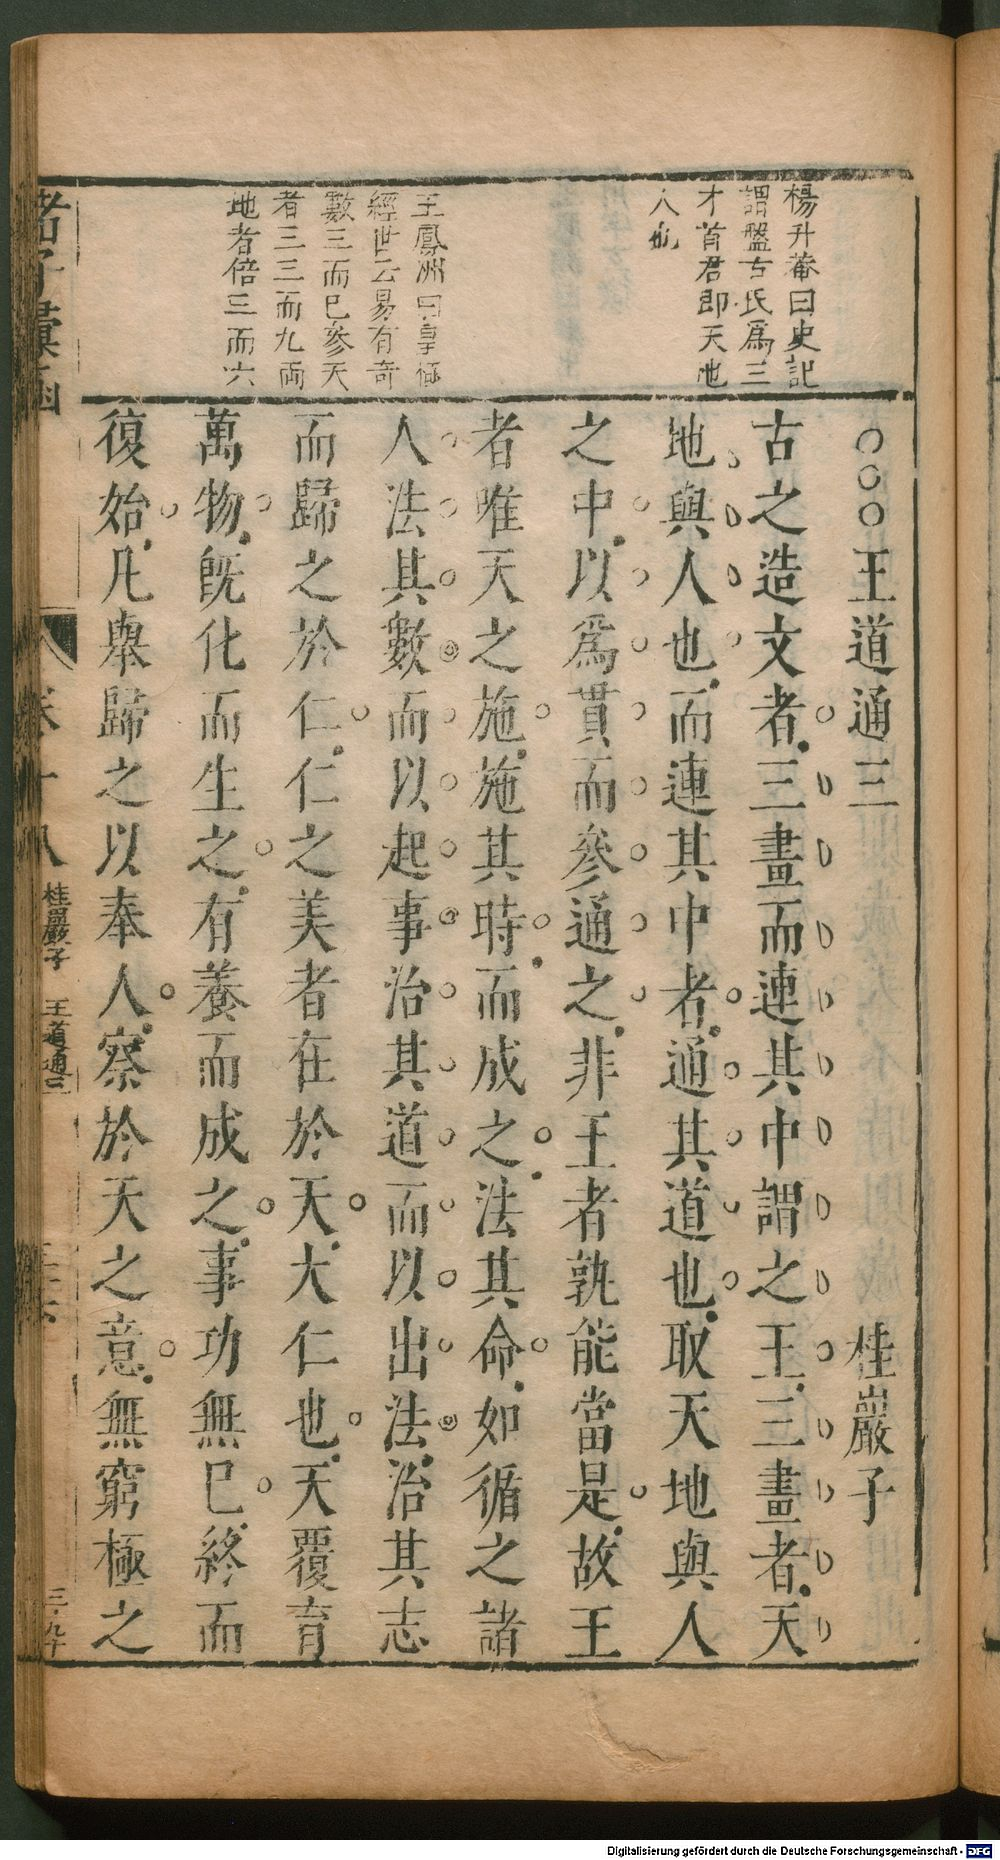 楊升菴曰史記
謂盤古氏爲三
才首君即天地
人也
王鳳洲曰皇極
經世云易有奇
數三而巳參天
者三三而九兩
地者倍三而六
○○○王道通三 桂巖子
古之造文者三畫而連其中謂之王三畫者天
地與人也而連其中者通其道也取天地與人
之中以爲貫而參通之非王者孰能當是故王
者唯天之施施其時而成之法其命如循之諸
人法其數而以起事治其道而以出法治其志
而歸之於仁仁之美者在於天大仁也天覆育
萬物旣化而生之有養而成之事功無巳終而
復始凡舉歸之以奉人察於天之意無窮極之
諸子彚函
卷十八
桂巖子 王道通三
Digitalisierung gefördert durch die Deutsche Forschungsgemeinschaft - DFG